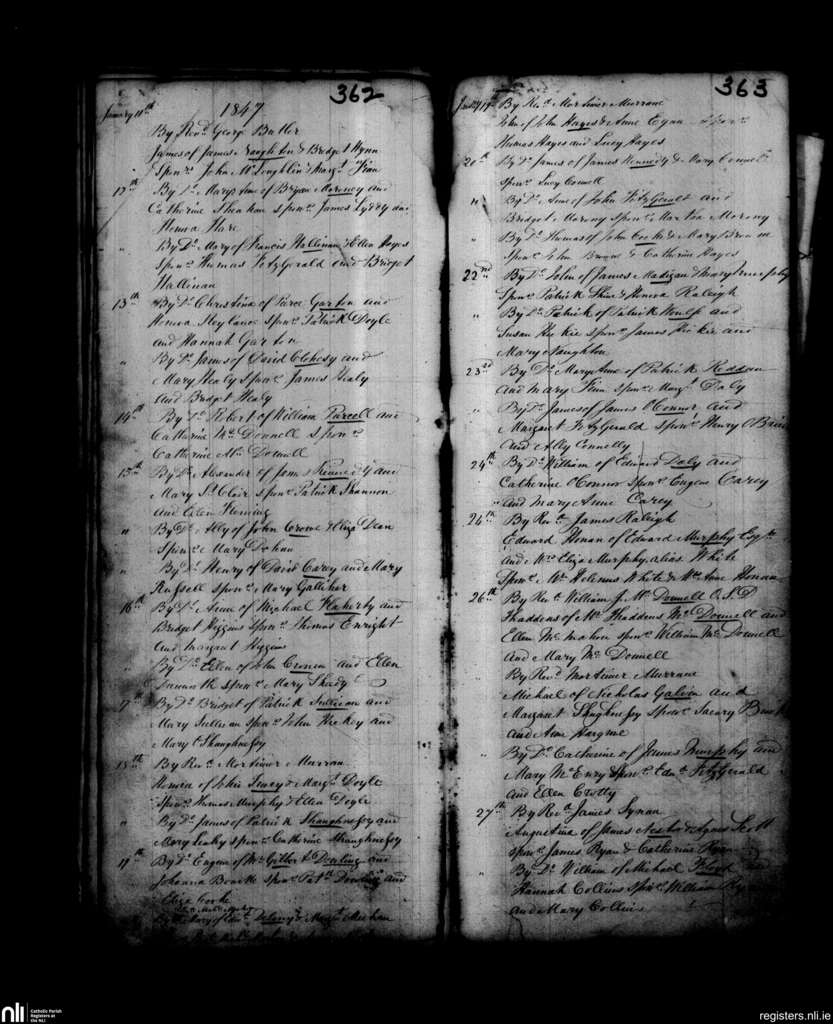 362
January 11th 1847
By Revd. George Butler
James of James Naughton & Bridget Wynn
Sponrs John McLoughlin & Margt
12th By Do. Mary Anne of Bryan Moroney and
Catherine Sheahan Sponrs James Lyddy and
Honora Hare
" By Do. Mary of Francis Hallinan & Ellen Hayes
Sponrs Thomas Fitzgerald and Bridget
Hallinan
13th By Do. Christina of Pierce Garton and
Honora Sponrs Patrick Doyle
and Hannah Garton
" By Do. James of David Clohesy and
Mary Healy Sponrs James Healy
And Bridget Healy
14th By Do. Robert of William Purcell and
Catherine McDonnell Sponrs
Catherine McDonnell
15th By Do. Alexander of James Kennedy and
Mary St Clair Sponrs Patrick Shannon
and Ellen Fleming
" By Do. Ally of John Crowe & Eliza Dean
Sponrs Mary
" By Do. Henry of David Carey and Mary
Russell Sponrs Mary Galliher
16th By Do. Anne of Michael Flaherty and
Bridget Higgins Sponrs Thomas Enright
And Margaret Higgins
" By Do. Ellen of John Cronin and Ellen
Sponrs Mary
17th By Do. Bridget of Patrick Sullivan and
Mary Sullivan Sponrs John Hickey and
Mary Shaughnessy
18th By Revd. Mortimer Murrane
of John & Margt Doyle
Sponrs Thomas Murphy & Ellen Doyle
" By Do. James of Patrick Shaughnessy and
Mary Leahy Sponrs Catherine Shaughnessy
19th By Do. Eugene of Mr. Gilbert Dowling and
Johanna Bourke Sponrs Patk Dowling and
Eliza
Mary of & Margt Meehan
363
19th By Revd. Mortimer Murrane
John of John Hayes & Anne Egan Sponrs
Thomas Hayes and Lucy Hayes
20th By Do. James of James Kennedy & Mary Connell
Sponrs Lucy Connell
" By Do. Anne of John Fitzgerald and
Bridget Morony Sponrs Martin Morony
" By Do. Thomas of John Cooke & Mary Browne
Sponrs John & Catherine Hayes
22nd By Do. John of James Madigan & Mary Murphy
Sponrs Patrick Shine & Honora Raleigh
" By Do. Patrick of Patrick Woulfe and
Susan Hickie Sponrs James Hickie and
Mary Naughton
23rd By Do. Mary Anne of Patrick Heddan
and Mary Sponrs Margt Daly
" By Do. James of James O'Connor and
Margaret Fitzgerald Sponrs Henry O'Brien
and Ally Connelly
24th By Do. William of Edward Daly and
Catherine O'Connor Sponrs Eugene Carey
and Mary Anne Carey
24th By Revd. James Raleigh
Edward Honan of Edward Murphy Esqre
and Mrs Eliza Murphy alias White
Sponrs Mr White & Mrs Anne Honan
26th By Revd. William J. McDonnell O.S.D
Thaddeus of Mr Thaddeus McDonnell and
Ellen McMahon Sponrs William McDonnell
And Mary McDonnell
By Revd. Mortimer Murrane
Michael of Nicholas Galvin and
Margaret Shaughnessy Sponrs
and Anne
" By Do. Catherine of James Murphy and
Mary McEnry Sponrs Edmd Fitzgerald
and Ellen Crotty
27th By Revd. James Synan
Augustina of James & Agnes Scott
Sponrs James Ryan & Catherine Ryan
" By Do. William of Michael Floyd and
Hannah Collins Sponrs William
and Mary Collins
nli
Catholic Parish
Registers at
the NLI
registers.nli.ie